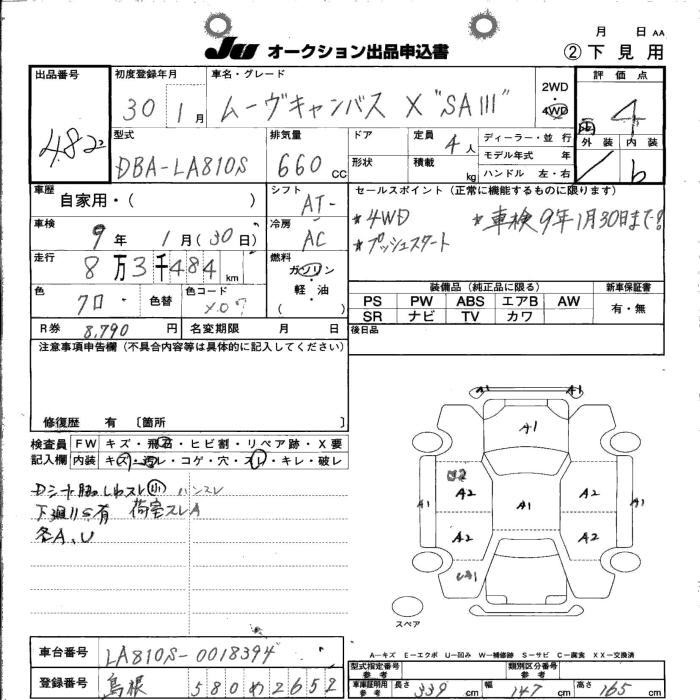 月 日 AA
JU オークション出品申込書
②下見用
出品番号
482
初度登録年月
30 1月
車名・グレード
ムーヴキャンバス X "SAIII"
2WD
・
4WD
評価点
4
外装 内装
b
型式
DBA-LA810S
排気量
660 CC
ドア
形状
定員 4人
積載 kg
ディーラー・並行
モデル年式 年
ハンドル 左・右
車歴
自家用・( )
シフト
AT-
セールスポイント(正常に機能するものに限ります)
★4WD ★車検9年1月30日まで!
★プッシュスタート
車検
9年 1月(30日)
冷房
AC
走行
8万3千484km
燃料
ガソリン
・
軽・油
( )
色
クロ
色替
色コード
X07
装備品(純正品に限る) 新車保証書
PS PW ABS エアB AW 有・無
SR ナビ TV カワ
R券 8,790円
名変期限 月 日
後日品
注意事項申告欄(不具合内容等は具体的に記入してください)
修復歴 有 〔箇所 〕
検査員
記入欄
FW キズ・飛石・ヒビ割・リペア跡・X要
内装 キズ・汚レ・コゲ・穴・スレ・キレ・破レ
Dシート脇しわスレ小 ハンスレ
下廻りサ有 荷室スレA
各A、U
A1 A1
A1
U2
A2 A2
A1 A1 A1
A2 A2
UA1
スペア
A—キズ E—エクボ U—凹み W—補修跡 S—サビ C—腐食 XX—交換済
車台番号 LA810S-0018394
登録番号 島根 580め2652
型式指定番号
参考
類別区分番号
参考
車庫証明用
参考
長さ 339cm 幅 147cm 高さ 165cm